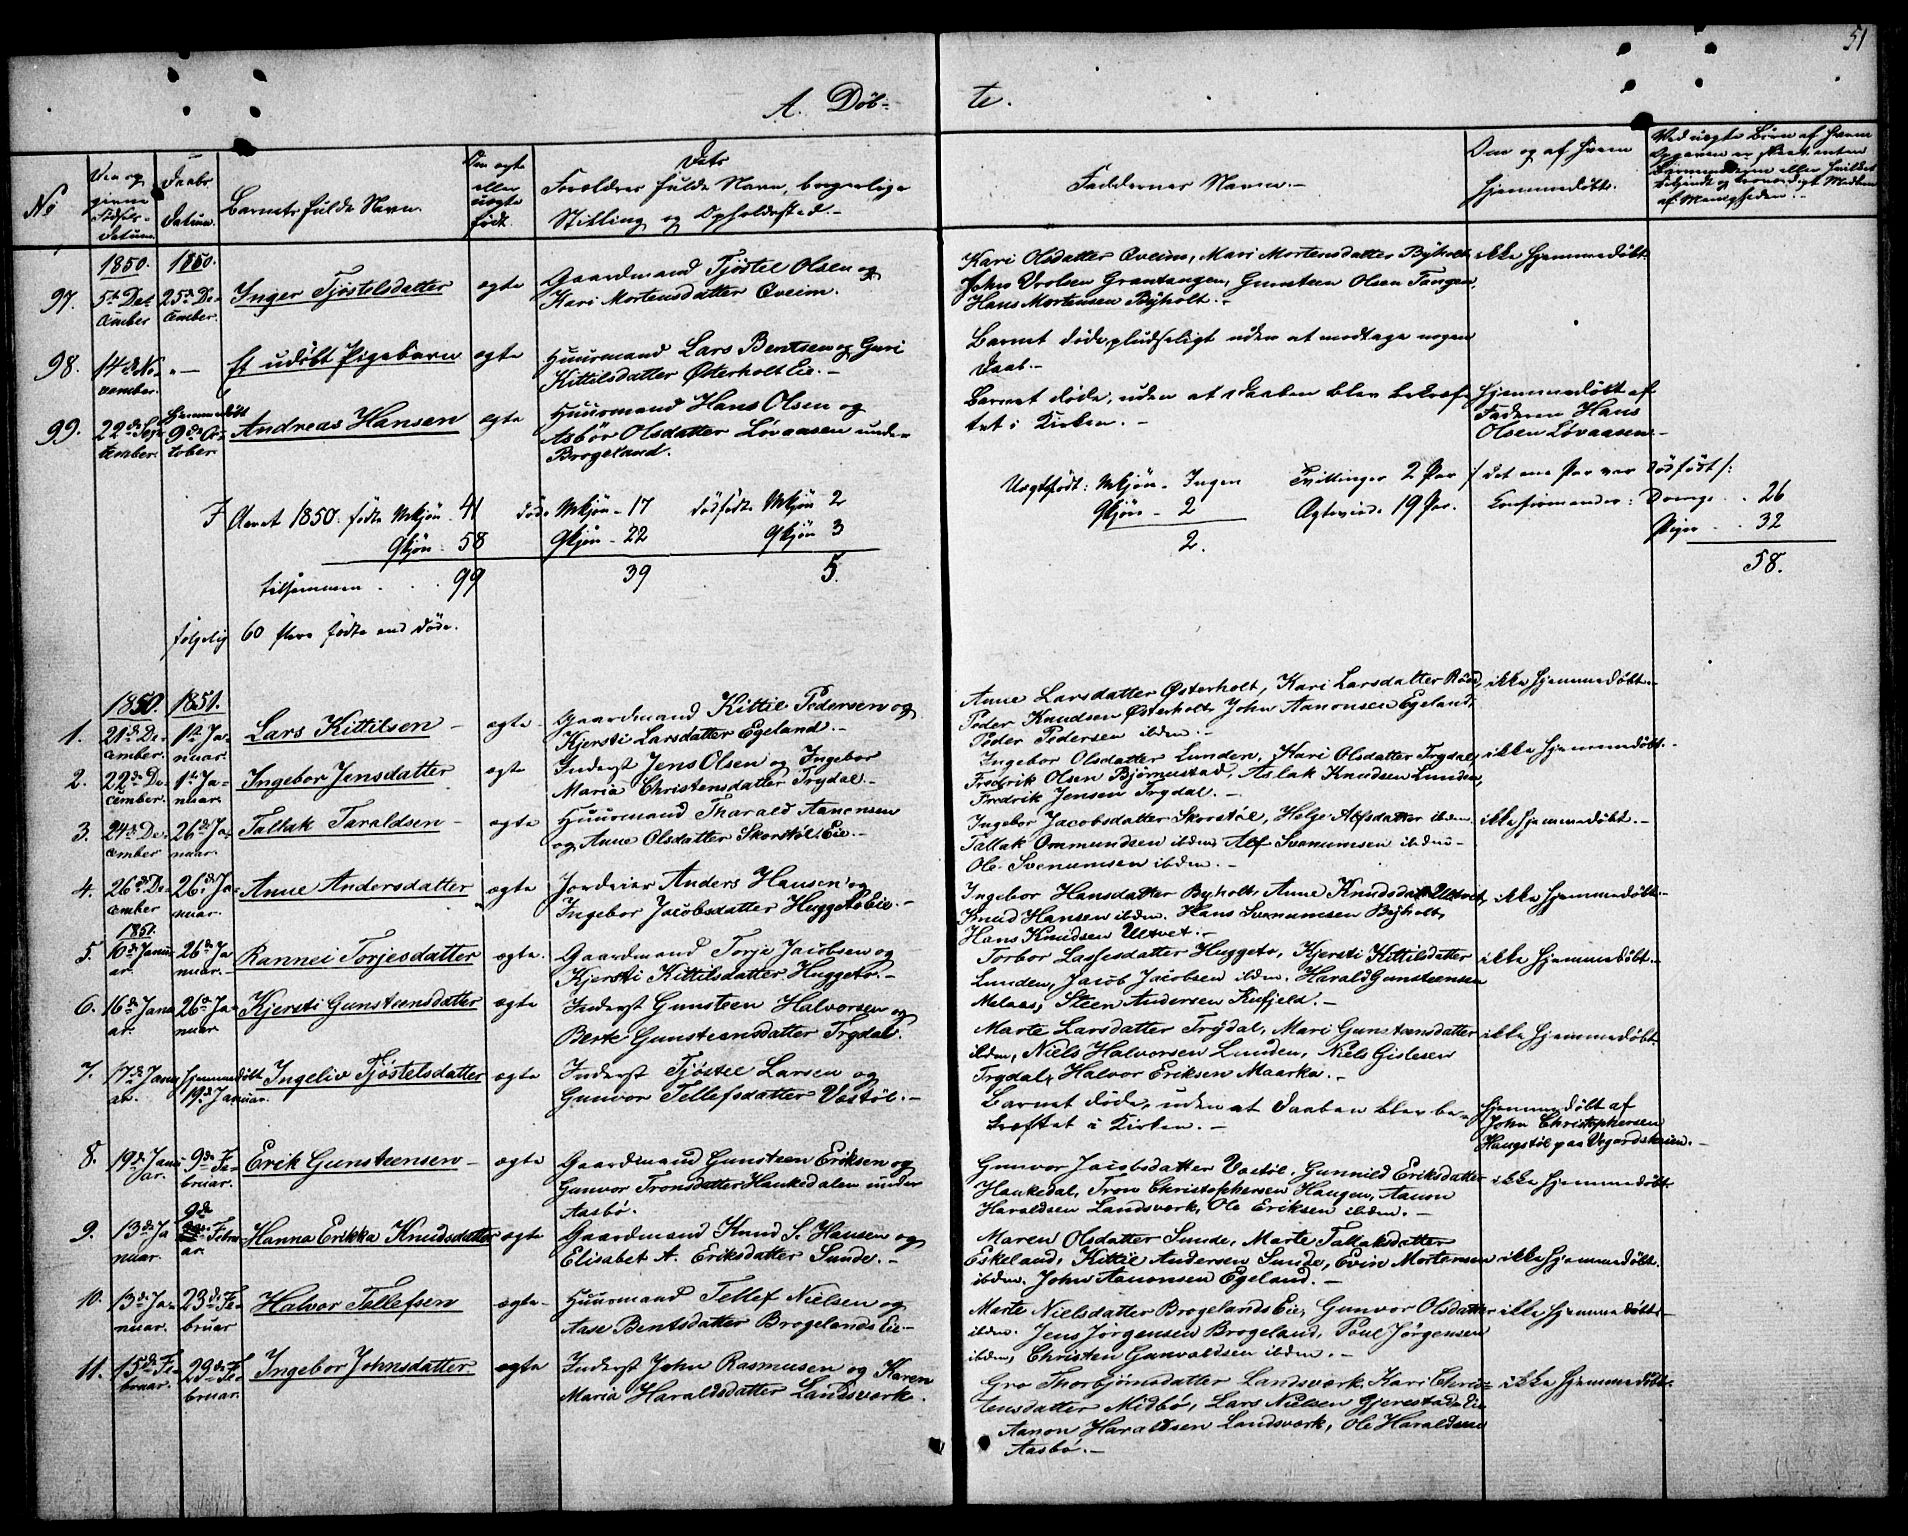 51
A. Døb-
te.
No
Den og givne Fødsels-Datum.
Daabs Datum.
Barnets fulde Navn.
Om ægte eller uægte født.
Dets Forældres fulde Navn, borgerlige Stilling og Opholdssted.-
Faddernes Navn.-
Om og af hvem hjemmedøbt.
Ved uægte Børn af hvem
1850. 1850.
97. 5te December 25de December. Inger Tjøstelsdatter ægte Gaardmand Tjøstel Olsen og
Kari Mortensdatter Qveim.
Kari Olsdatter Qveim, Mari Mortensdatter Byholt, ikke hjemmedøbt
John Orolsen Grantangen, Gunsteen Olsen Tangen,
Hans Mortensen Byholt.-
98. 14de November. "- Et udøbt Pigebarn ægte Huusmand Lars Bentsen og Guri
Kittilsdatter Østerholt Eie.-
Barnet døde pludseligt uden at modtage nogen
Daab.-
99. 22de September. Hjemmedøbt 9de October. Andreas Hansen ægte Huusmand Hans Olsen og
Asbør Olsdatter Løvaasen under
Brogeland.
Barnet døde, uden at Daaben blev bekræf-
tet i Kirken.-
Hjemmedøbt af
Faderen Hans
Olsen Løvaasen.-
I Aaret 1850: fødte Mkjøn. 41 døde Mkjøn - 17 dødfødte Mkjøn 2
Qkjøn. 58 Qkjøn - 22 Qkjøn 3
tilsammen . . 99 39 5.
følgelig 60 flere fødte end døde.
Uægtefødt: Mkjøn - Ingen Tvillinger 2 Par / det ene Par var dødfødt /:
Qkjøn - 2 Ægteviede 19 Par. Confirmander: Drenge . . 26
Piger . . 32
2. 58.
1850. 1851.
1. 21de December. 1ste Januar. Lars Kittilsen - ægte Gaardmand Kittil Pedersen og
Kjersti Larsdatter Egeland.-
Anne Larsdatter Østerholt, Kari Larsdatter Røed, ikke hjemmedøbt.-
Peder Knudsen Østerholt, John Aanonsen Egeland,
Peder Pedersen ibdm.-
2. 22de December. 1ste Januar. Ingebor Jensdatter ægte Inderst Jens Olsen og Ingebor
Maria Christensdatter Trydal.-
Ingebor Olsdatter Lunden, Kari Olsdatter Trydal, ikke hjemmedøbt.-
Fredrik Olsen Bjørnestad, Aslak Knudsen Lunden,
Fredrik Jensen Trydal.-
3. 24de December 26de Januar. Tallak Taraldsen - ægte Huusmand Tharald Aanonsen
og Anne Olsdatter Skorstøl Eie.-
Ingebor Jacobsdatter Skorstøl, Helge Alfsdatter ibdm. ikke hjemmedøbt.-
Tallak Ommundsen ibdm, Alf Svenumsen ibdm
Ole Svenumsen ibdm.-
4. 26de December 26de Januar. Anne Andersdatter ægte Jordeier Anders Hansen og
Ingebor Jacobsdatter Huggetø Eie.-
Ingebor Hansdatter Byholt, Anne Knudsdatter Ultvet, ikke hjemmedøbt.-
Knud Hansen ibdm. Hans Svenumsen Byholt,
Hans Knudsen Ultvet.-
1851.
5. 10de Januar. 26de Januar.- Rannei Torjesdatter ægte. Gaardmand Torje Jacobsen og
Kjersti Kittilsdatter Huggetø.-
Torbor Lassesdatter Huggetø, Kjersti Kittilsdatter ikke hjemmedøbt.-
Lunden, Jacob Jacobsen ibdm. Harald Gunsteensen
Melaas, Steen Andersen Kufjeld.-
6. 16de Januar. 26de Januar Kjersti Gunsteensdatter ægte Inderst Gunsteen Halvorsen og
Berte Gunsteensdatter Trydal.
Marte Larsdatter Trydal, Mari Gunsteensdatter ikke hjemmedøbt.
ibdm, Niels Halvorsen Lunden, Niels Gislesen
Trydal, Halvor Eriksen Maarka.-
7. 17de Januar. Hjemmedøbt 19de Januar. Ingeliv Tjøstelsdatter ægte Inderst Tjøstel Larsen og
Gunvor Tellefsdatter Vastøl.-
Barnet døde, uden at Daaben blev be-
kræftet i Kirken.-
hjemmedøbt af
John Christophersen
Haugstøl paa Vegardsheien.-
8. 19de Januar. 9de Februar. Erik Gunsteensen - ægte Gaardmand Gunsteen Eriksen og
Gunvor Tronsdatter Haukedalen under
Aasbø.
Gunvor Jacobsdatter Vastøl, Gunnild Eriksdatter ikke hjemmedøbt
Haukedal, Tron Christophersen Haugen, Aanon
Haraldsen Landsverk, Ole Eriksen ibdm.-
9. 13de Januar. 9de Februar. Hanna Erikka Knudsdatter ægte Gaardmand Knud S. Hansen og
Elisabet A. Eriksdatter Sunde.-
Maren Olsdatter Sunde, Marte Tallaksdatter
Eskeland, Kittil Andersen Sunde, Evin Mortensen ikke hjemmedøbt.
ibdm. John Aanonsen Egeland.-
10. 13de Januar. 23de Februar Halvor Tellefsen ægte- Huusmand Tellef Nielsen og
Aase Bentsdatter Brogelands Eie.-
Marte Nielsdatter Brogelands Eie, Gunvor Olsdatter ikke hjemmedøbt.-
ibdm. Jens Jørgensen Brogeland, Poul Jørgensen
ibdm, Christen Gunvaldsen ibdm.-
11. 15de Februar. 23de Februar. Ingebor Johnsdatter ægte Inderst John Rasmusen og Karen
Maria Haraldsdatter Landsverk.
Gro Thorbjørnsdatter Landsverk, Kari Chris- ikke hjemmedøbt.
tensdatter Midbø, Lars Nielsen Gjerestads Eie
Aanon Haraldsen Landsverk, Ole Haraldsen
Aasbø.-